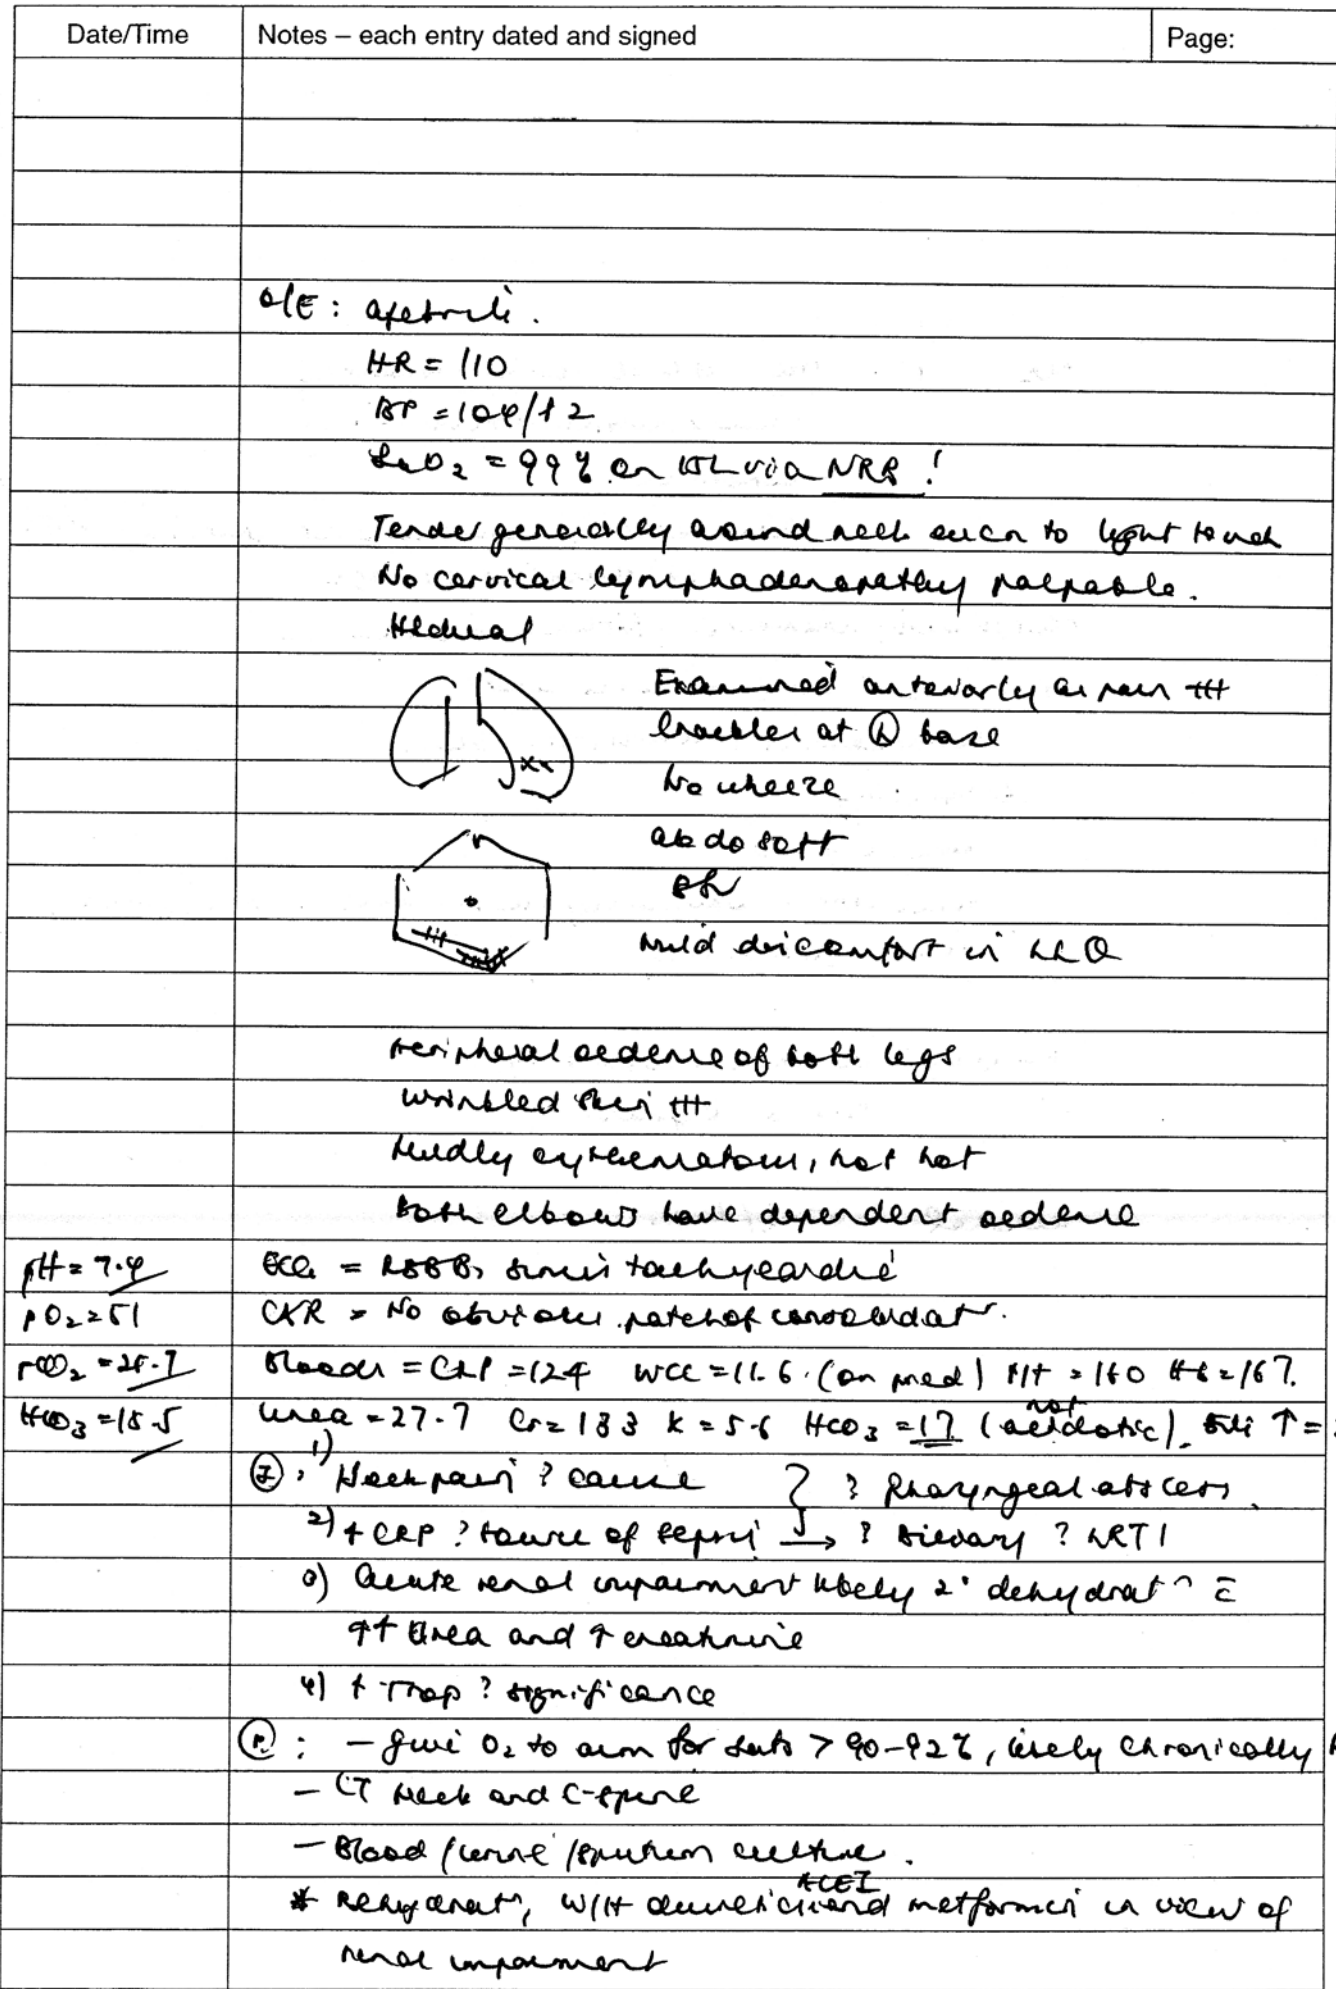 Date/Time Notes – each entry dated and signed Page:
O/E: afebrile.
HR = 110
BP = 104/
SaO2 = 99% on 15L via NRB!
Tender generally around neck even to light touch
No cervical lymphadenopathy palpable.
Examined anteriorly as pain +++
Crackles at (L) base
xx
No wheeze
abdo soft
mild discomfort in LLQ
Peripheral oedema of both legs
Wrinkled skin +++
Mildly erythematous, not hot
Both elbows have dependent oedema
pH = 7.4 ECG = RBBB, sinus tachycardia
pO2 = 51 CXR = No obvious patch of consolidatn.
pCO2 = Bloods = CRP = 124 WCC = 11.6 (on pred) Plt = 160 Hb = 167.
HCO3 = 18.5 Urea = 27.7 Cr = 183 K = 5.6 HCO3 = 17 (not acidotic). ↑ =
(I): 1) Neck pain ? cause } ? Pharyngeal abscess.
2) ↑ CRP ? source of sepsis → ? Biliary ? LRTI
3) Acute renal impairment likely 2° dehydratn c̄
↑↑ Urea and ↑ creatinine
4) ↑ Trop ? significance
(P): – give O2 to aim for sats > 90-92%, likely chronically
– CT Neck and C-spine
– Blood / urine / sputum culture.
* Rehydratn, W/H diuretics ACEI and metformin in view of
renal impairment